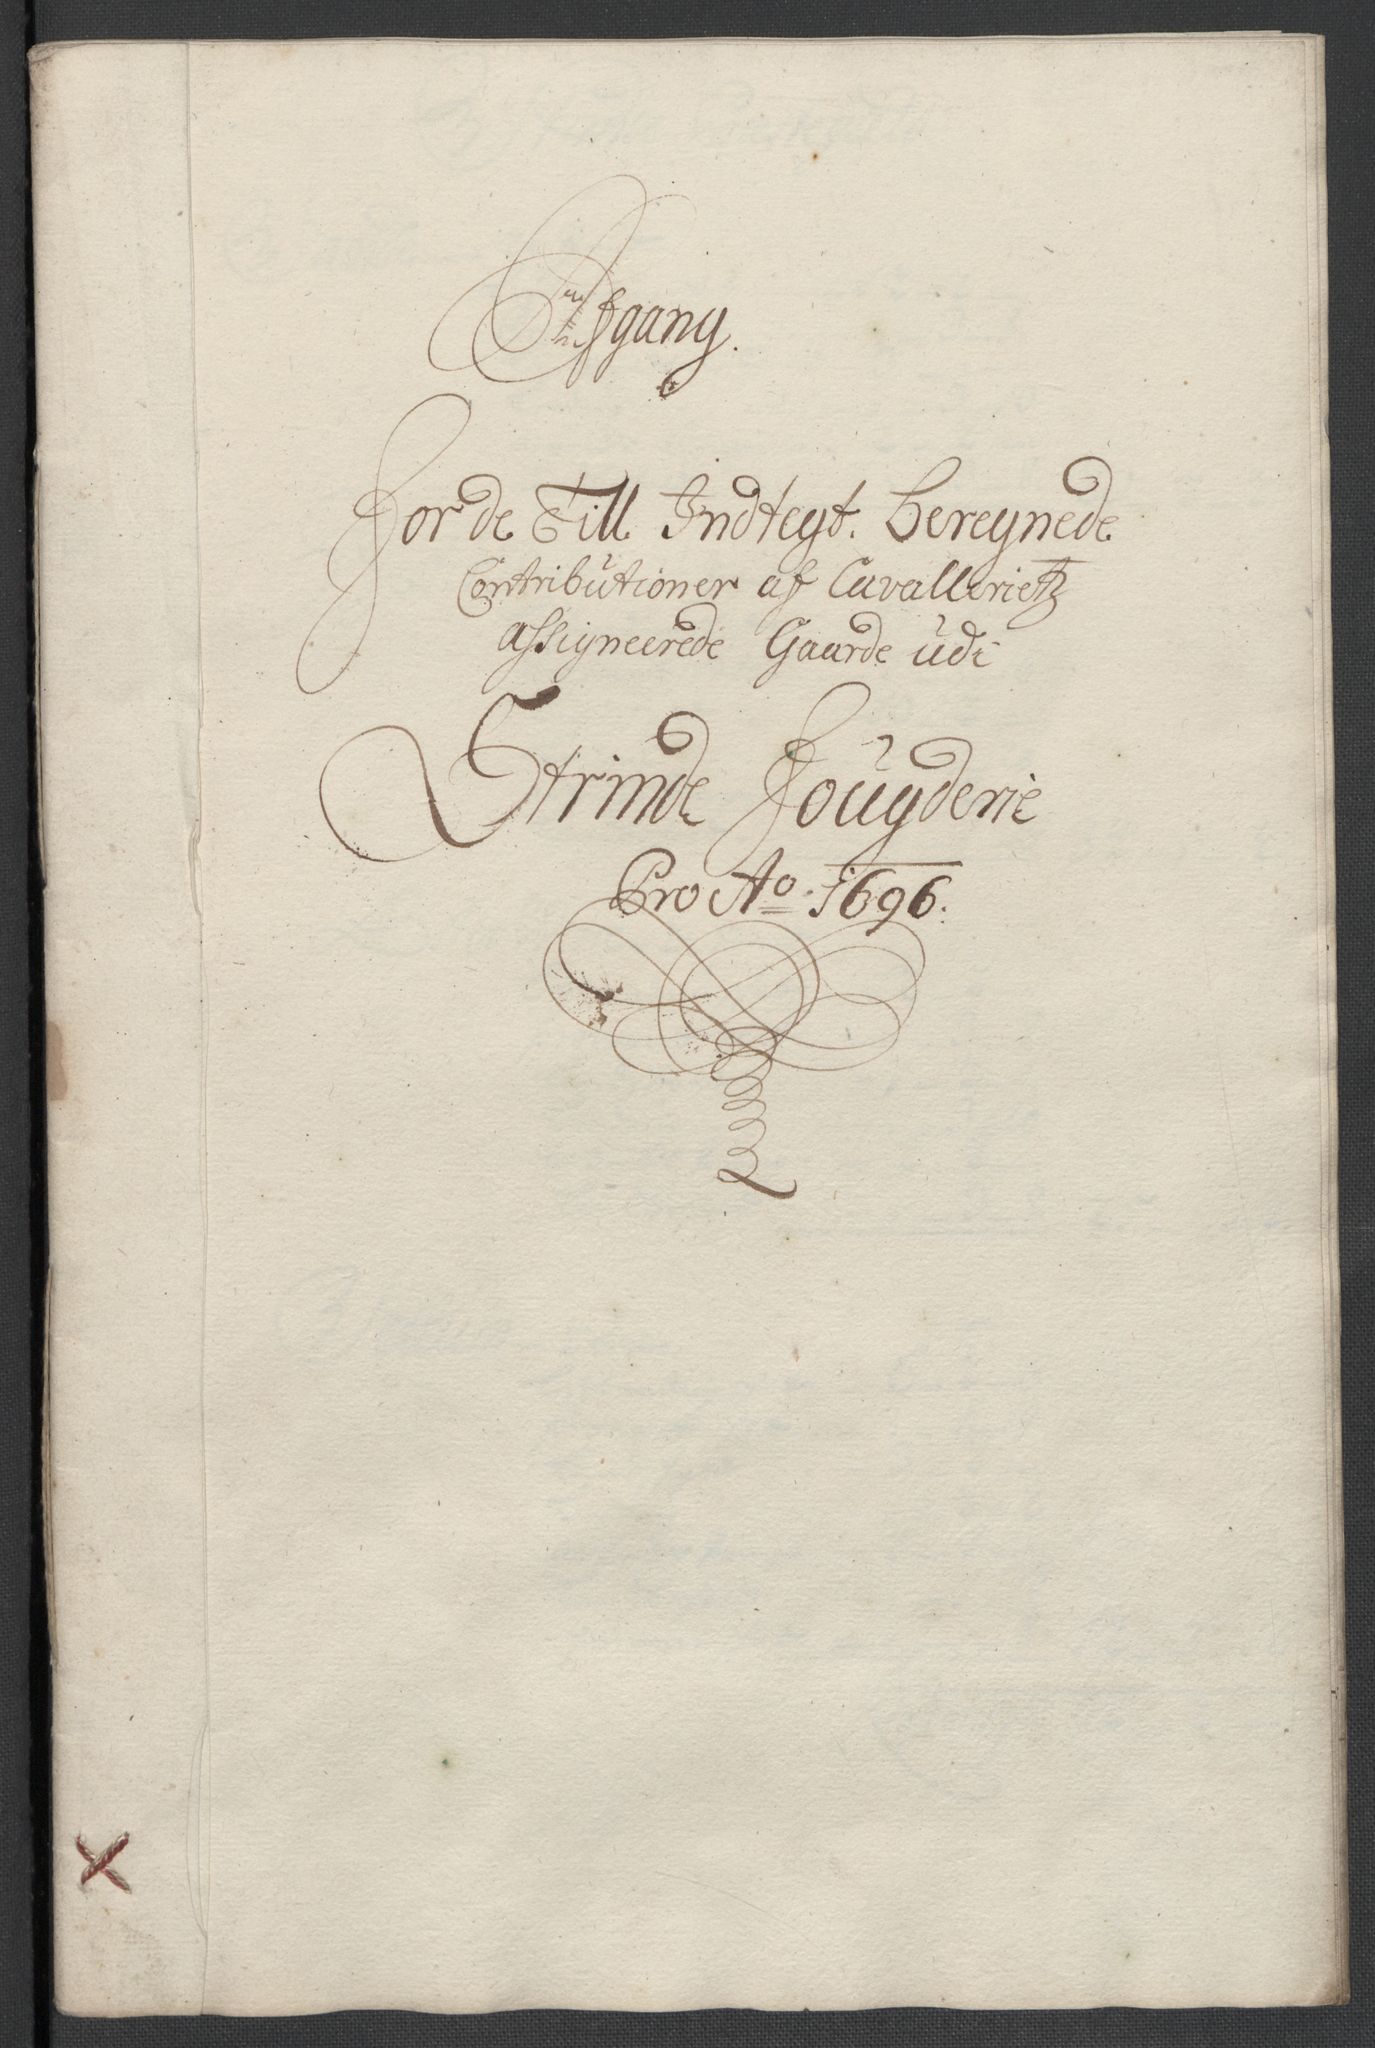 Afgang.
For de Till Indtegt. Beregnede
Contributioner af Cavallerietz
assigneerede Gaarde udi
Strinde Fougderie
Pro Ao. 1696.